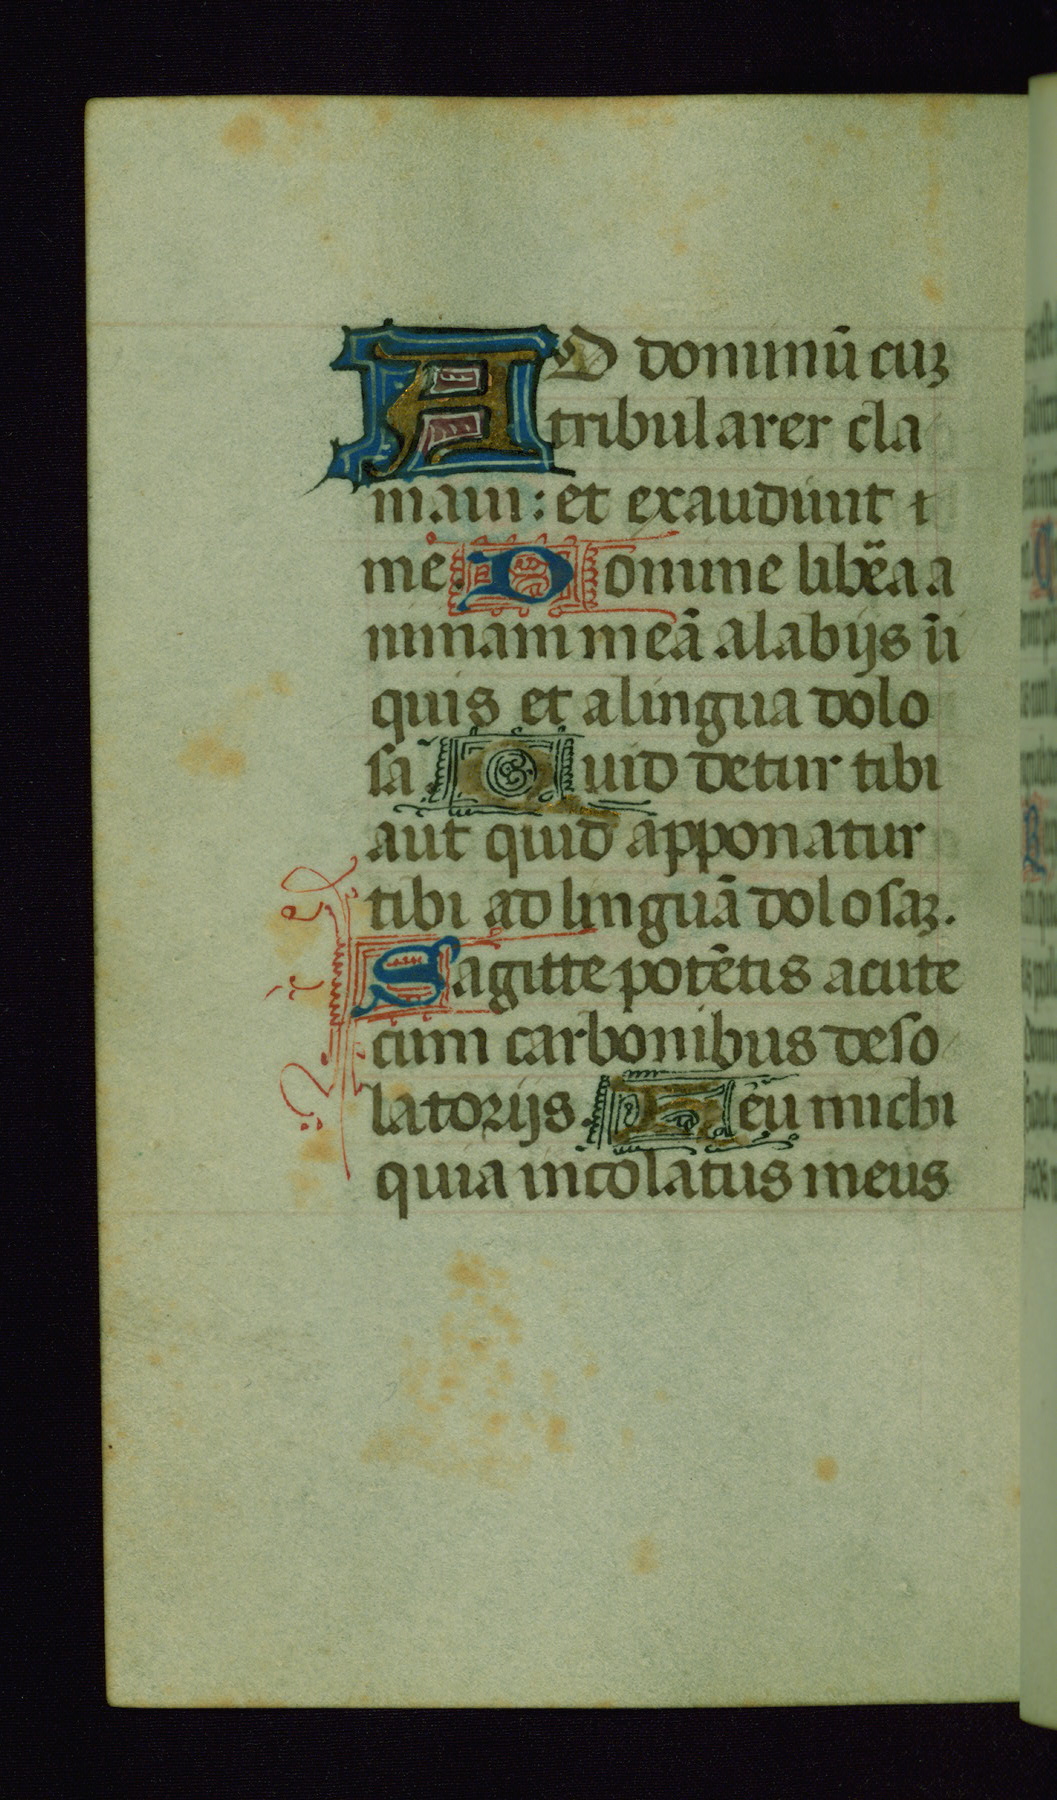 AD dominū cuʒ
tribularer cla
maui : et exaudiuit
me. Domine libēa a
nimam meā a labijs ini
quis et a lingua dolo
sa Quid detur tibi
aut quid apponatur
tibi ad linguā dolosaʒ.
Sagitte potētis acute
cum carbonibus deso
latorijs. Heu michi
quia incolatus meus